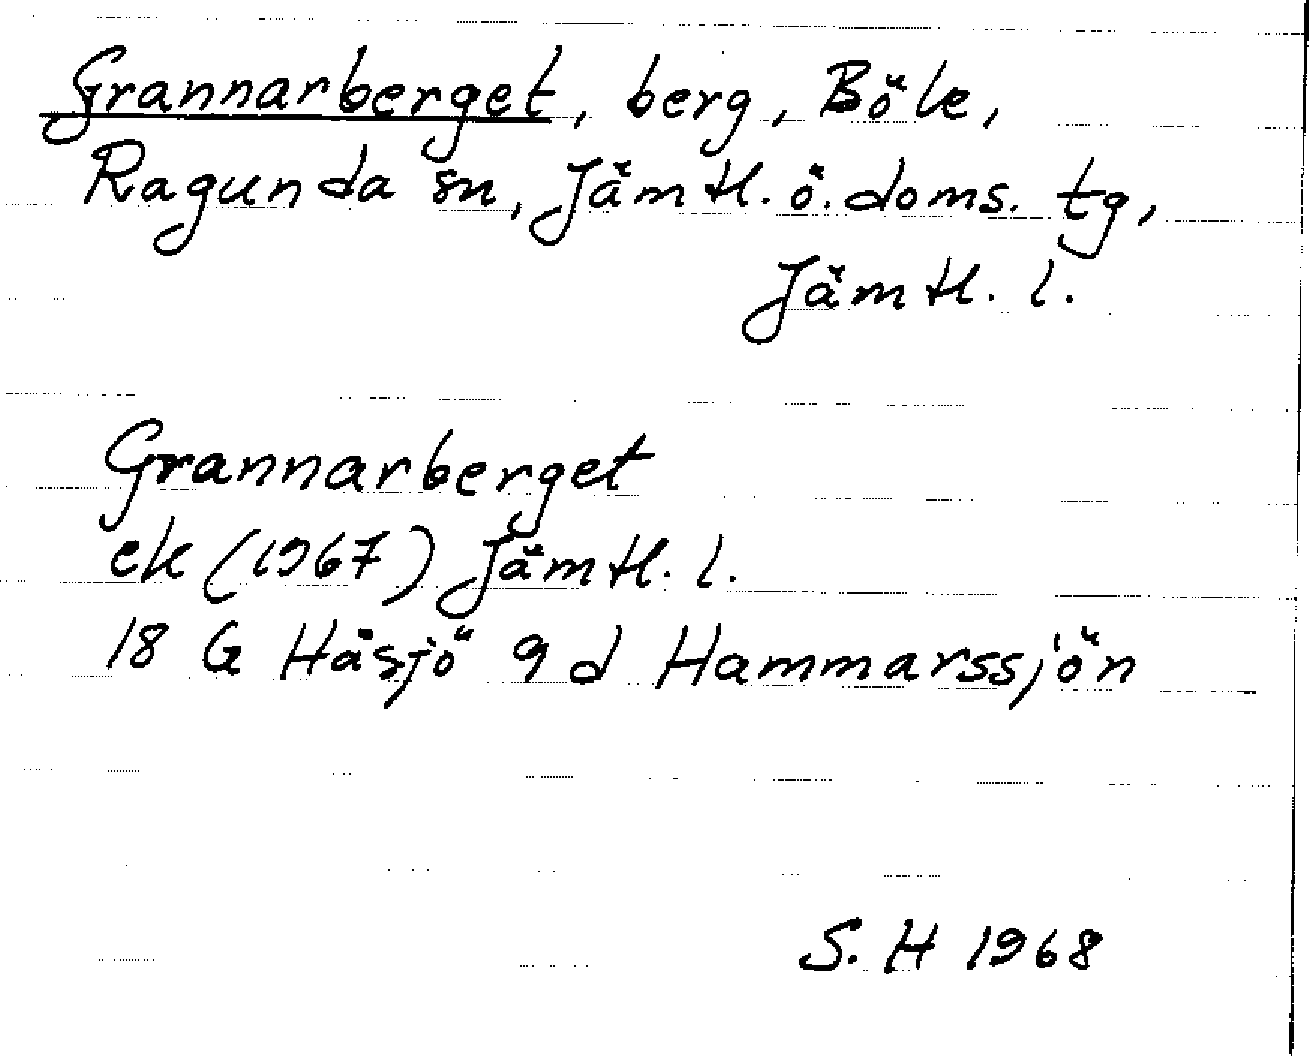 Grannarberget, berg, Böle,
Ragunda sn, Jämtl. ö. doms. tg,
Jämtl. l.
Grannarberget
ek (1967) Jämtl. l.
18 G Håsjö 9 d Hammarssjön
S. H 1968